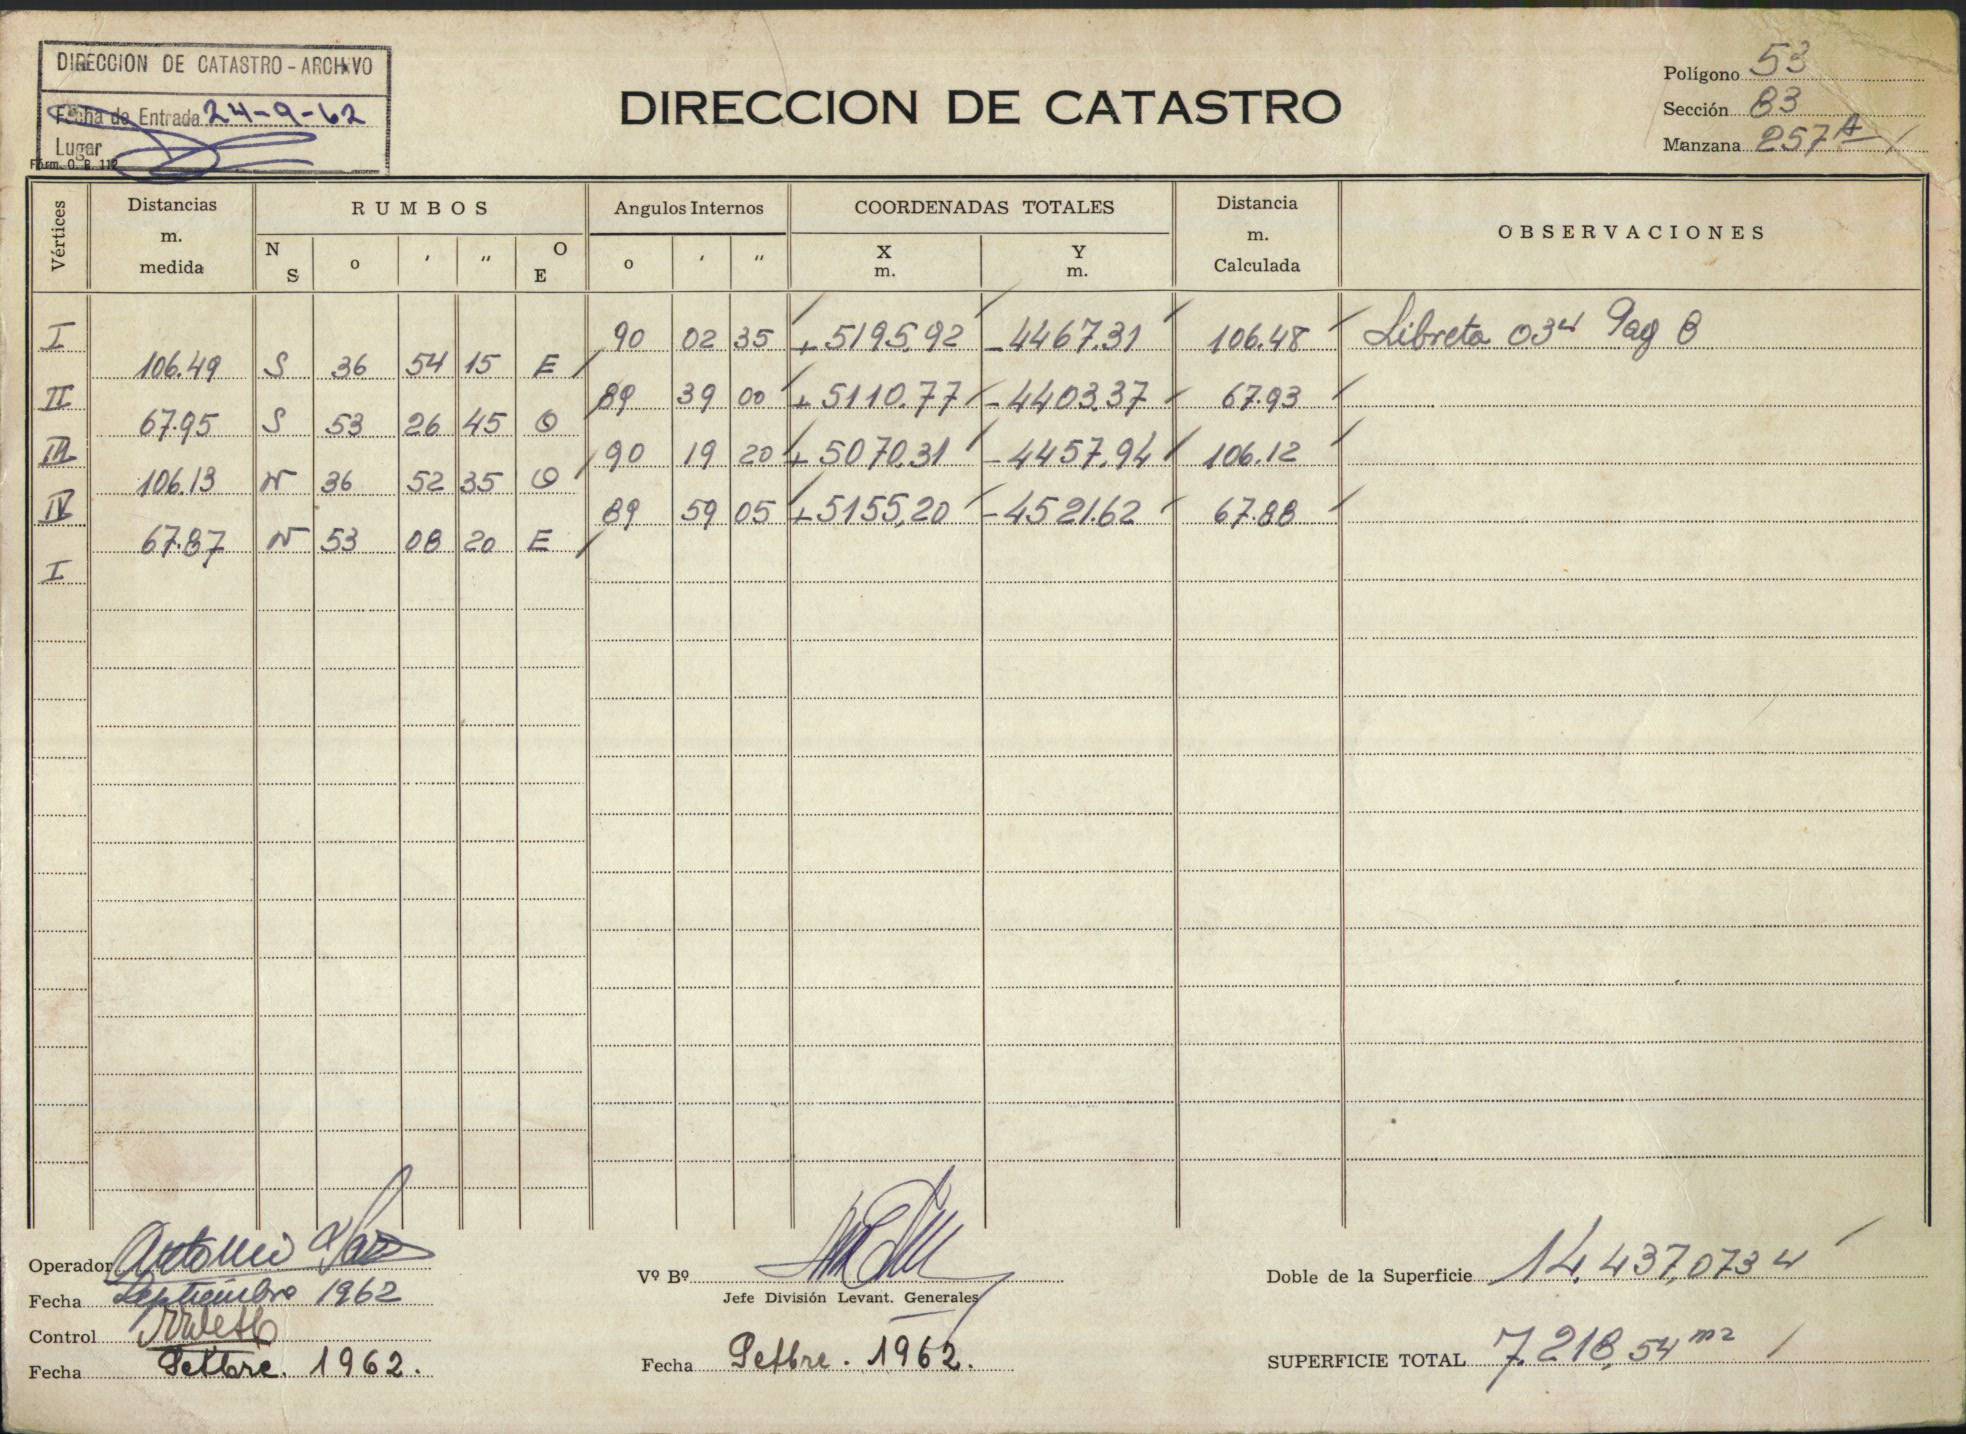 DIRECCION DE CATASTRO - ARCHIVO
Fecha de Entrada 24-9-62
Lugar
Form. O. B. 112
DIRECCION DE CATASTRO
Polígono 53
Sección 83
Manzana 257 A
Vértices
Distancias m. medida
RUMBOS
N S o ′ ″ O E
Angulos Internos
o ′ ″
COORDENADAS TOTALES
X m. Y m.
Distancia m. Calculada
OBSERVACIONES
I 90 02 35 +5195,92 -4467.31 106.48 Libreta 034 Pag 8
106.49 S 36 54 15 E
II 89 39 00 +5110.77 -4403.37 67.93
67.95 S 53 26 45 O
III 90 19 20 +5070.31 -4457.94 106.12
106.13 N 36 52 35 O
IV 89 59 05 +5155,20 -4521.62 67.88
67.87 N 53 08 20 E
I
Operador Antonio
Fecha Septiembre 1962
Control
Fecha Setbre. 1962.
Vº Bº
Jefe División Levant. Generales
Fecha Setbre. 1962.
Doble de la Superficie 14.437,0734
SUPERFICIE TOTAL 7.218,54 m2